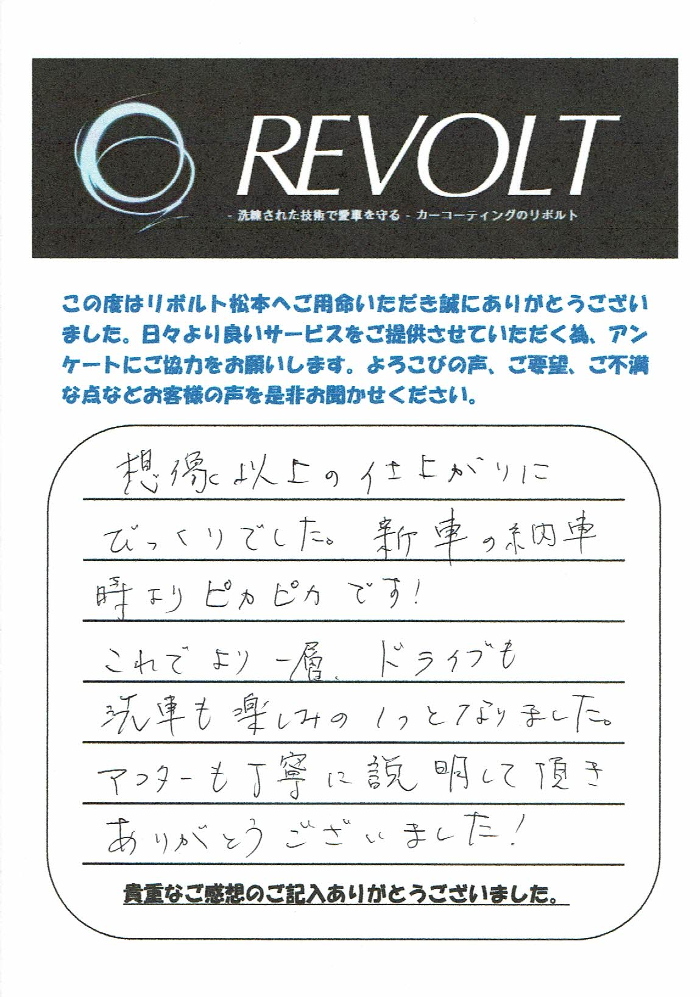 REVOLT
- 洗練された技術で愛車を守る - カーコーティングのリボルト
この度はリボルト松本へご用命いただき誠にありがとうござい
ました。日々より良いサービスをご提供させていただく為、アン
ケートにご協力をお願いします。よろこびの声、ご要望、ご不満
な点などお客様の声を是非お聞かせください。
想像以上の仕上がりに
びっくりでした。新車の納車
時よりピカピカです!
これでより一層、ドライブも
洗車も楽しみの1つとなりました。
アフターも丁寧に説明して頂き
ありがとうございました!
貴重なご感想のご記入ありがとうございました。